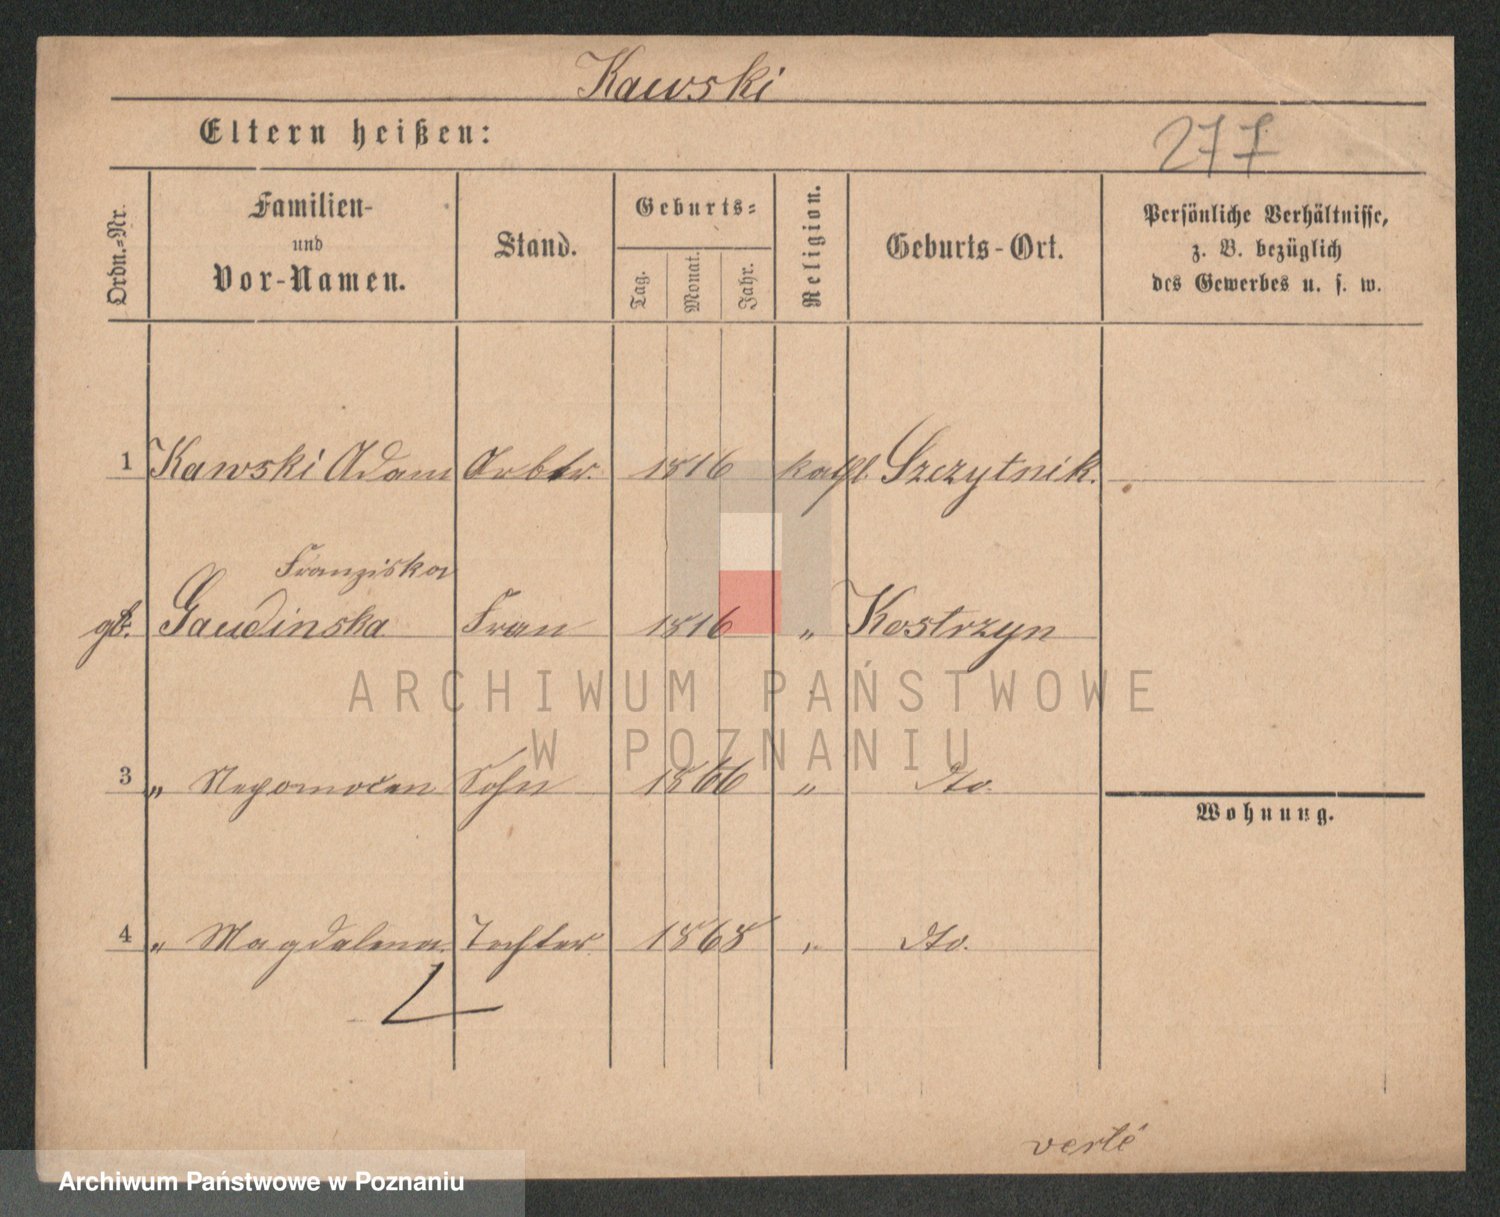 Kawski
Eltern heißen:
277
Ordn.-Nr.
Familien-
und
Vor-Namen.
Stand.
Geburts-
Tag.
Monat.
Jahr.
Religion.
Geburts-Ort.
Persönliche Verhältnisse,
z. B. bezüglich
des Gewerbes u. s. w.
1 Kawski Adam Arbtr. 1816 kathl. Szczytnik.
Franziska
gb. Gaudinska Frau 1816 „ Kostrzyn
ARCHIWUM PAŃSTWOWE
W POZNANIU
3 „ Nepomocen Sohn 1866 „ dto.
Wohnung.
4 „ Magdalena Tochter 1868 „ dto.
verté
Archiwum Państwowe w Poznaniu